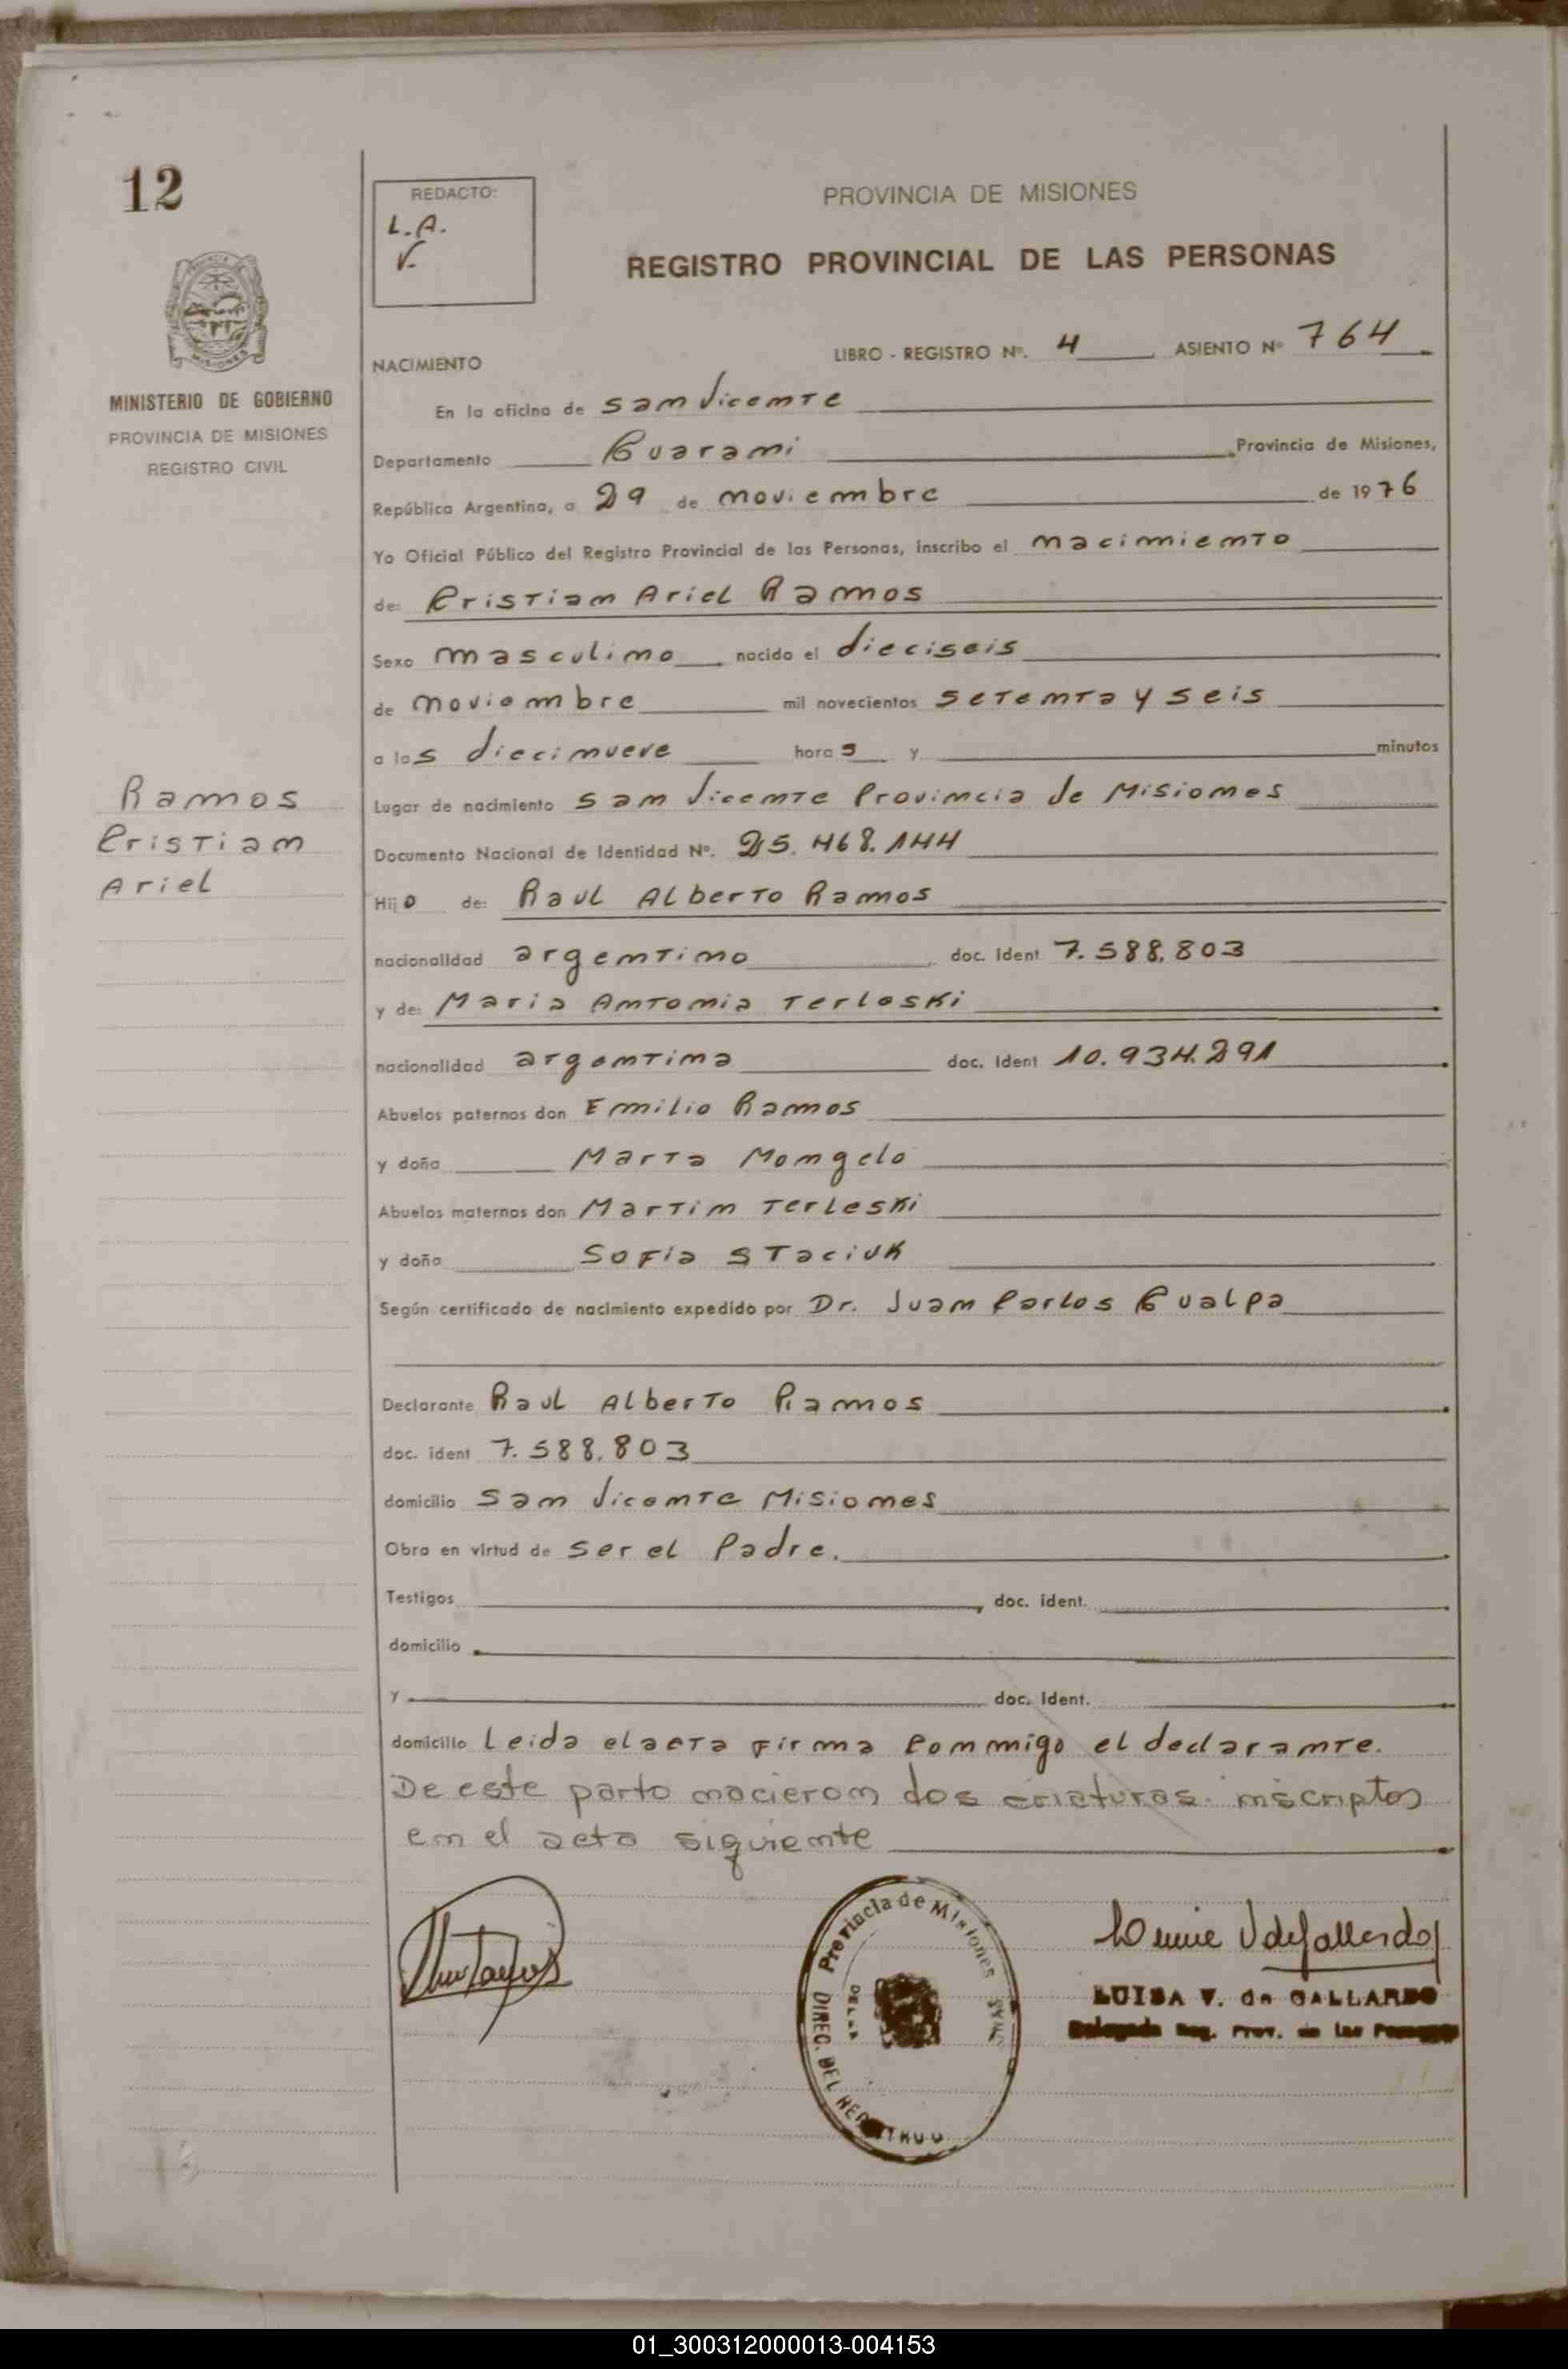 12
REDACTO:
L.A.
V.
PROVINCIA DE MISIONES
REGISTRO PROVINCIAL DE LAS PERSONAS
MINISTERIO DE GOBIERNO
PROVINCIA DE MISIONES
REGISTRO CIVIL
NACIMIENTO LIBRO - REGISTRO Nº. 4 ASIENTO Nº 764
En la oficina de San Vicente
Departamento Guarani Provincia de Misiones,
República Argentina, a 29 de noviembre de 1976
Yo Oficial Público del Registro Provincial de las Personas, inscribo el nacimiento
de: Cristian Ariel Ramos
Sexo masculino nacido el dieciseis
de noviembre mil novecientos setenta y seis
a las diecinueve horas y minutos
Ramos
Cristian
Ariel
Lugar de nacimiento San Vicente Provincia de Misiones
Documento Nacional de Identidad Nº. 25.468.144
Hijo de: Raul Alberto Ramos
nacionalidad argentino doc. ident 7.588.803
y de: Maria Antonia Terloski
nacionalidad argentina doc. ident 10.934.291
Abuelos paternos don Emilio Ramos
y doña Marta Mongelo
Abuelos maternos don Martin Terleski
y doña Sofia Staciuk
Según certificado de nacimiento expedido por Dr. Juan Carlos Gualpa
Declarante Raul Alberto Ramos
doc. ident 7.588.803
domicilio San Vicente Misiones
Obra en virtud de ser el Padre.
Testigos , doc. ident.
domicilio
y doc. ident.
domicilio Leida el acta firma conmigo el declarante.
De este parto nacieron dos criaturas. inscriptos
en el acta siguiente
Provincia de Misiones
DIREC. DEL REGISTRO
LUISA V. de GALLARDO
Delegada Reg. Prov. de las Personas
01_300312000013-004153